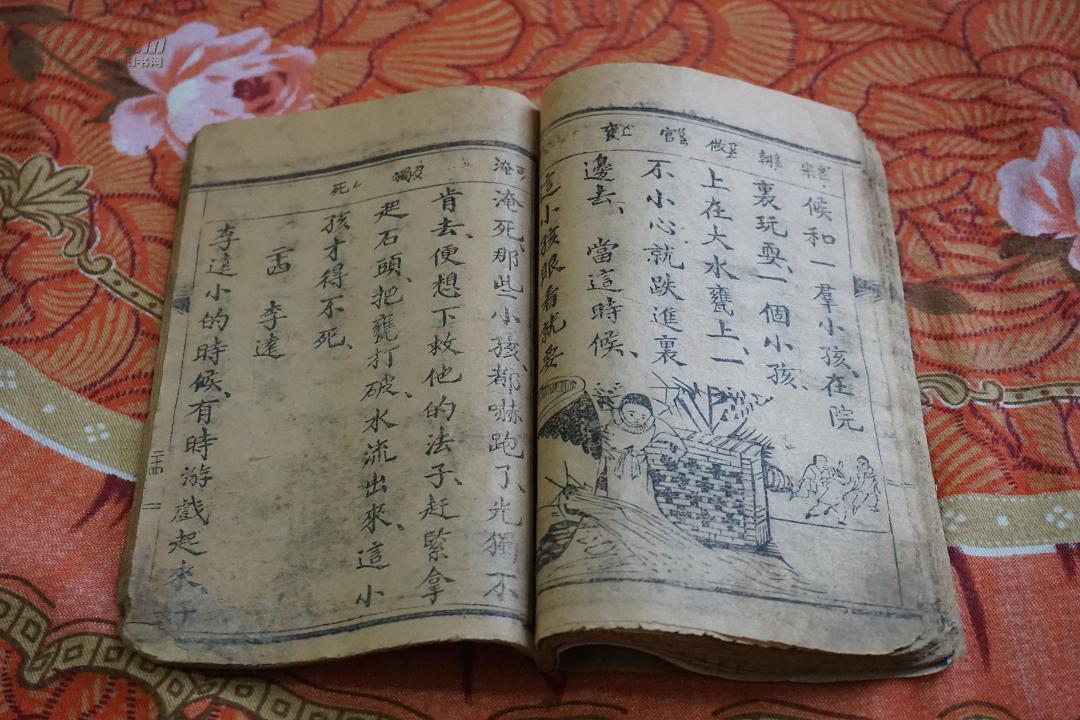 宗 朝 做 官 甕
候和一羣小孩、在院
裏玩耍、一個小孩、
上在大水甕上、一
不小心就跌進裏
邊去、當這時候、
這小孩眼看就要
淹 獨 死
淹死、那些小孩、都嚇跑了、光獨不
肯去、便想下救他的法子、赶緊拿
起石頭、把甕打破、水流出來、這小
孩才得不死、
李達
李達小的時候、有時游戲起來、
旧书网